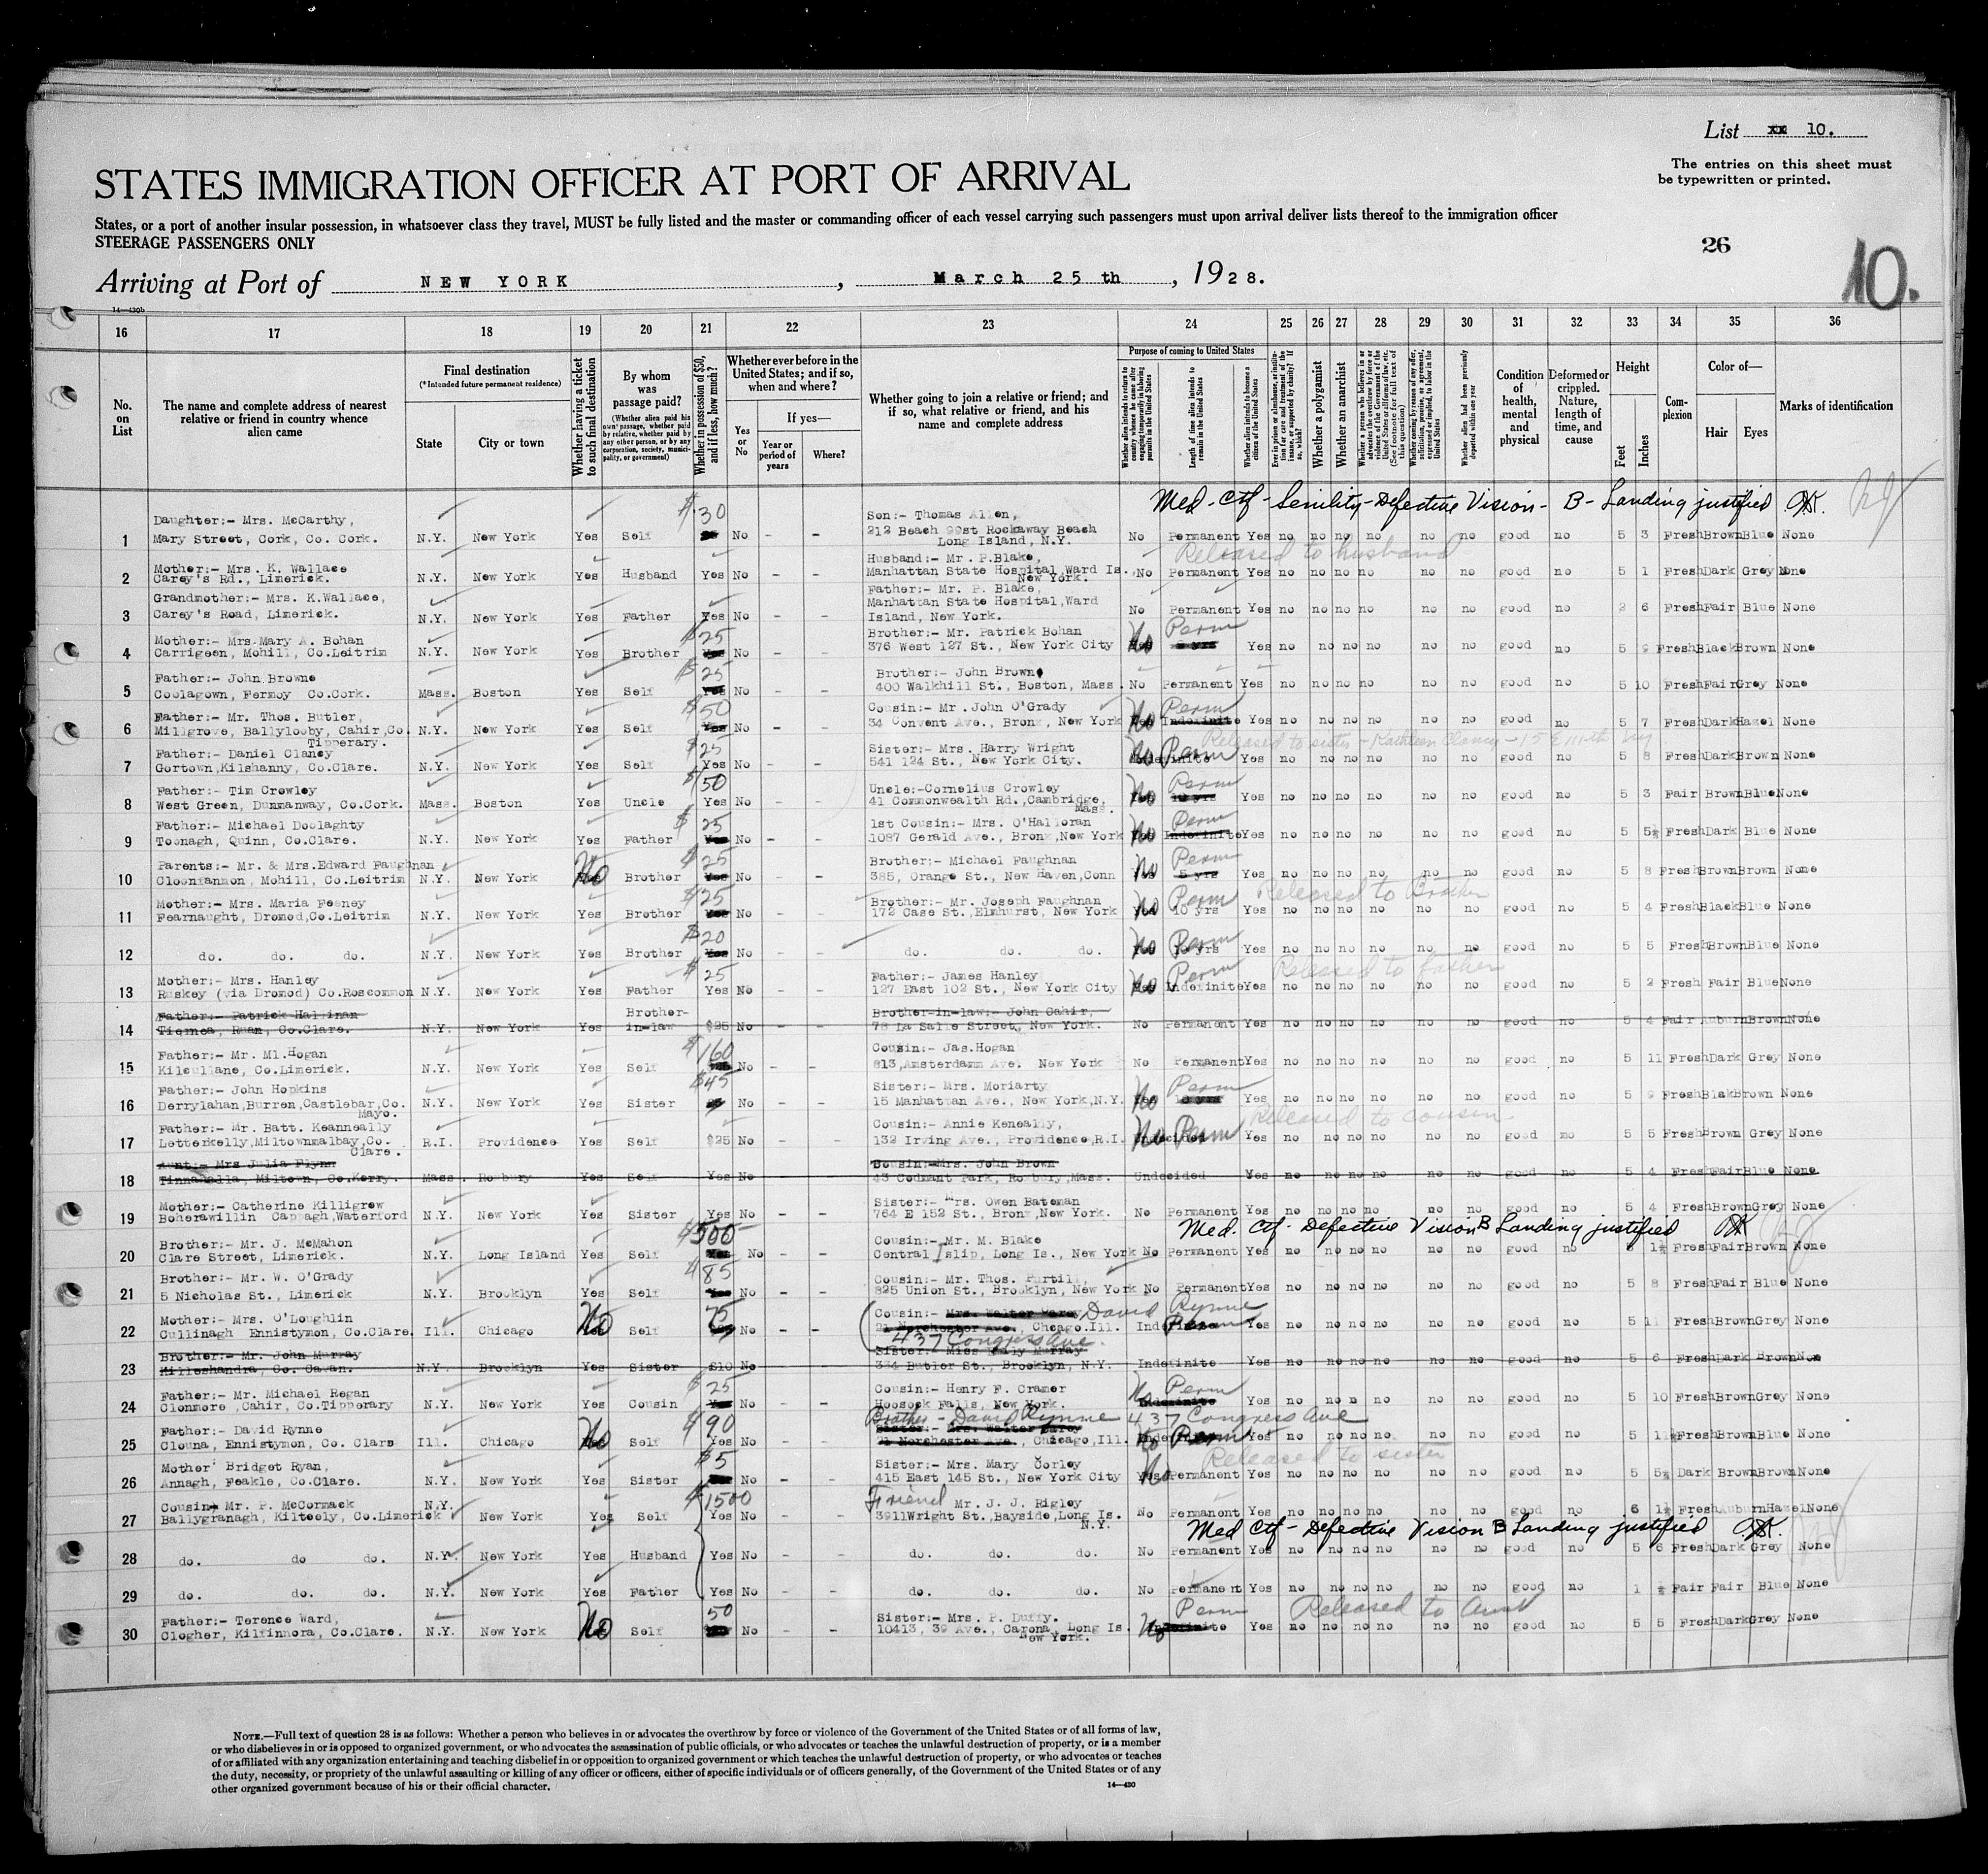 List xx 10.
The entries on this sheet must
be typewritten or printed.
STATES IMMIGRATION OFFICER AT PORT OF ARRIVAL
States, or a port of another insular possession, in whatsoever class they travel, MUST be fully listed and the master or commanding officer of each vessel carrying such passengers must upon arrival deliver lists thereof to the immigration officer
STEERAGE PASSENGERS ONLY
26
10.
Arriving at Port of NEW YORK, March 25 th, 1928.
14—430b
16 17 18 19 20 21 22 23 24 25 26 27 28 29 30 31 32 33 34 35 36
No. on List
The name and complete address of nearest relative or friend in country whence alien came
Final destination
(*Intended future permanent residence)
State City or town
Whether having a ticket to such final destination
By whom was passage paid?
(Whether alien paid his own passage, whether paid by relative, whether paid by any other person, or by any corporation, society, municipality, or government)
Whether in possession of $50, and if less, how much?
Whether ever before in the United States; and if so, when and where?
Yes or No
If yes—
Year or period of years Where?
Whether going to join a relative or friend; and if so, what relative or friend, and his name and complete address
Purpose of coming to United States
Whether alien intends to return to country whence he came after engaging temporarily in laboring pursuits in the United States
Length of time alien intends to remain in the United States
Whether alien intends to become a citizen of the United States
Whether a polygamist
Whether an anarchist
Condition of health, mental and physical
Deformed or crippled. Nature, length of time, and cause
Height
Feet Inches
Complexion
Color of—
Hair Eyes
Marks of identification
Med. Ctf - Senility - Defective Vision - B - Landing justified
Daughter:- Mrs. McCarthy, $30 Son:- Thomas Allen,
1 Mary Street, Cork, Co. Cork. N.Y. New York Yes Self No - - 212 Beach 99st Rockaway Beach Long Island, N.Y. No Permanent Yes no no no no no no good no 5 3 Fresh Brown Blue None
Released to husband
Mother:- Mrs. K. Wallace Husband:- Mr. P.Blake,
2 Carey's Rd., Limerick. N.Y. New York Yes Husband Yes No - - Manhattan State Hospital,Ward Is. New York. No Permanent Yes no no no no no no good no 5 1 Fresh Dark Grey None
Grandmother:- Mrs. K.Wallace, Father:- Mr. P. Blake,
3 Carey's Road, Limerick. N.Y. New York Yes Father Yes No - - Manhattan State Hospital,Ward Island, New York. No Permanent Yes no no no no no no good no 2 6 Fresh Fair Blue None
Mother:- Mrs.Mary A. Bohan $25 Brother:- Mr. Patrick Bohan Perm
4 Carrigeen, Mohill, Co.Leitrim N.Y. New York Yes Brother Yes No - - 376 West 127 St., New York City No Yes no no no no no no good no 5 9 Fresh Black Brown None
Father:- John Browne $25 Brother:- John Brown
5 Coolagown, Fermoy Co.Cork. Mass. Boston Yes Self Yes No - - 400 Walkhill St., Boston, Mass. No Permanent Yes no no no no no no good no 5 10 Fresh Fair Grey None
Father:- Mr. Thos. Butler, $50 Cousin:- Mr. John O'Grady Perm
6 Millgrove, Ballylooby, Cahir,Co. Tipperary. N.Y. New York Yes Self Yes No - - 34 Convent Ave., Bronx, New York No Indefinite Yes no no no no no no good no 5 7 Fresh Dark Hazel None
Released to sister - Kathleen Clancy - 15 E 111th NY
Father:- Daniel Clancy $25 Sister:- Mrs. Harry Wright
7 Gortown,Kilshanny, Co.Clare. N.Y. New York Yes Self Yes No - - 541 124 St., New York City. No Perm Yes no no no no no no good no 5 8 Fresh Dark Brown None
Father:- Tim Crowley $50 Uncle:-Cornelius Crowley Perm
8 West Green, Dunmanway, Co.Cork. Mass. Boston Yes Uncle Yes No - - 41 Commonwealth Rd.,Cambridge, Mass. No Yes no no no no no no good no 5 3 Fair Brown Blue None
Father:- Michael Doolaghty $25 1st Cousin:- Mrs. O'Halloran Perm
9 Toonagh, Quinn, Co.Clare. N.Y. New York Yes Father Yes No - - 1087 Gerald Ave., Bronx,New York No Indefinite Yes no no no no no no good no 5 5½ Fresh Dark Blue None
Parents:- Mr. & Mrs.Edward Faughnan $25 Brother:- Michael Faughnan Perm
10 Cloonfannon, Mohill, Co.Leitrim N.Y. New York No Brother Yes No - - 385, Orange St., New Haven,Conn No 5 yrs Yes no no no no no no good no 5 8 Fresh Brown Brown None
Released to Brother
Mother:- Mrs. Maria Feeney $25 Brother:- Mr. Joseph Faughnan Perm
11 Fearnaught, Dromod,Co.Leitrim N.Y. New York Yes Brother Yes No - - 172 Case St.,Elmhurst, New York No 10 yrs Yes no no no no no no good no 5 4 Fresh Black Blue None
$20
12 do. do. do. N.Y. New York Yes Brother Yes No - - do. do. do. No Perm Yes no no no no no no good no 5 5 Fresh Brown Blue None
Released to father
Mother:- Mrs. Hanley $25 Father:- James Hanley Perm
13 Ruskey (via Dromod) Co.Roscommon N.Y. New York Yes Father Yes No - - 127 East 102 St., New York City No Indefinite Yes no no no no no no good no 5 2 Fresh Fair Blue None
Father:- Patrick Hallinan Brother- Brother-in-law:- John Cahir,
14 Tiernea, Ruan, Co.Clare. N.Y. New York Yes in-law $25 No 78 La Salle Street, New York. No Permanent Yes no no no no no no good no 5 4 Fair Auburn Brown None
Father:- Mr. Ml.Hogan $160 Cousin:- Jas.Hogan
15 Kilcullane, Co.Limerick. N.Y. New York Yes Self No - - 813,Amsterdamm Ave. New York No Permanent Yes no no no no no no good no 5 11 Fresh Dark Grey None
Father:- John Hopkins $45 Sister:- Mrs. Moriarty Perm
16 Derrylahan,Burren,Castlebar,Co. Mayo. N.Y. New York Yes Sister No - - 15 Manhattan Ave., New York,N.Y. No Yes no no no no no no good no 5 9 Fresh Blak Brown None
Released to cousin
Father:- Mr. Batt. Keanneally Cousin:- Annie Keneally,
17 Letterkelly,Miltownmalbay,Co. Clare. R.I. Providence Yes Self $25 No - - 132 Irving Ave., Providence,R.I. No Perm Yes no no no no no no good no 5 5 Fresh Brown Grey None
Aunt:- Mrs Julia Flynn Cousin:-Mrs. John Brown
18 Tinnahalla, Miltown, Co.Kerry. Mass. Roxbury Yes Self Yes No 43 Codmant Park, Roxbuly,Mass. Undecided Yes no no no no no no good no 5 4 Fresh Fair Blue None
Mother:- Catherine Killigrew Sister:- Mrs. Owen Bateman
19 Boherawillin Cappagh,Waterford N.Y. New York Yes Sister Yes No - - 764 E 152 St., Bronx,New York. No Permanent Yes no no no no no no good no 5 4 Fresh Brown Grey None
Med. Ctf - Defective Vision B Landing justified
Brother:- Mr. J. McMahon $500 Cousin:- Mr. M. Blake
20 Clare Street, Limerick. N.Y. Long Island Yes Self Yes No - - Central Islip, Long Is., New York No Permanent Yes no no no no no no good no 5 1½ Fresh Fair Brown None
Brother:- Mr. W. O'Grady $85 Cousin:- Mr. Thos. Purtill,
21 5 Nicholas St., Limerick N.Y. Brooklyn Yes Self Yes No - - 825 Union St., Brooklyn, New York No Permanent Yes no no no no no no good no 5 8 Fresh Fair Blue None
Mother:- Mrs. O'Loughlin 75 Cousin:- Mrs. Walter David Rynne
22 Cullinagh Ennistymon, Co.Clare. Ill. Chicago No Self No - - 21 Norchester Ave. Chicago.Ill. Perm Yes no no no no no no good no 5 11 Fresh Brown Grey None
437 Congress Ave.
Brother:- Mr. John Murray Sister:- Miss Murray
23 Killeshandra, Co. Cavan. N.Y. Brooklyn Yes Sister $10 No 334 Butler St., Brooklyn, N.Y. Indefinite Yes no no no no no no good no 5 6 Fresh Dark Brown Non
Father:- Mr. Michael Regan $25 Cousin:- Henry F. Cramer Perm
24 Clonmore ,Cahir, Co.Tipperary N.Y. New York Yes Cousin Yes No - - Hoosock Falls, New York. No Yes no no no no no good no 5 10 Fresh Brown Grey None
Brother - David Rynne 437 Congress Ave
Father:- David Rynne $90 Sister:- Mrs. Walter
25 Clouna, Ennistymon, Co. Clare Ill. Chicago No Self Yes No - - 21 Norchester Ave., Chicago,Ill. No Perm Yes no no no no no no good no 5 11½ Fresh Brown Blue None
Released to sister
Mother Bridget Ryan, $5 Sister:- Mrs. Mary Corley
26 Annagh, Feakle, Co.Clare. N.Y. New York Yes Sister No - - 415 East 145 St., New York City No Permanent Yes no no no no no no good no 5 5½ Dark Brown Brown None
Cousin Mr. P. McCormack $1500 Friend Mr. J. J. Rigley
27 Ballygranagh, Kilteely, Co.Limerick N.Y. New York Yes Self Yes No 3911Wright St.,Bayside,Long Is. N.Y. No Permanent Yes no no no no no no good no 6 1½ Fresh Auburn Hazel None
Med Ctf - Defective Vision B Landing justified
28 do. do do. N.Y. New York Yes Husband Yes No - - do. do. do. No Permanent Yes no no no no no no good no 5 6 Fresh Dark Grey None
29 do. do. do. N.Y. New York Yes Father Yes No - - do. do. do. No Permanent Yes no no no no no no good no 1 Fair Fair Blue None
Perm Released to Aunt
Father:- Terence Ward, 50 Sister:- Mrs. P. Duffy.
30 Clogher, Kilfinnora, Co.Clare. N.Y. New York No Self No - - 10413, 39 Ave., Carona, Long Is. New York. No Yes no no no no no no good no 5 5 Fresh Dark Grey None
NOTE.—Full text of question 28 is as follows: Whether a person who believes in or advocates the overthrow by force or violence of the Government of the United States or of all forms of law,
or who disbelieves in or is opposed to organized government, or who advocates the assassination of public officials, or who advocates or teaches the unlawful destruction of property, or is a member
of or affiliated with any organization entertaining and teaching disbelief in or opposition to organized government or which teaches the unlawful destruction of property, or who advocates or teaches
the duty, necessity, or propriety of the unlawful assaulting or killing of any officer or officers, either of specific individuals or of officers generally, of the Government of the United States or of any
other organized government because of his or their official character.
14—430